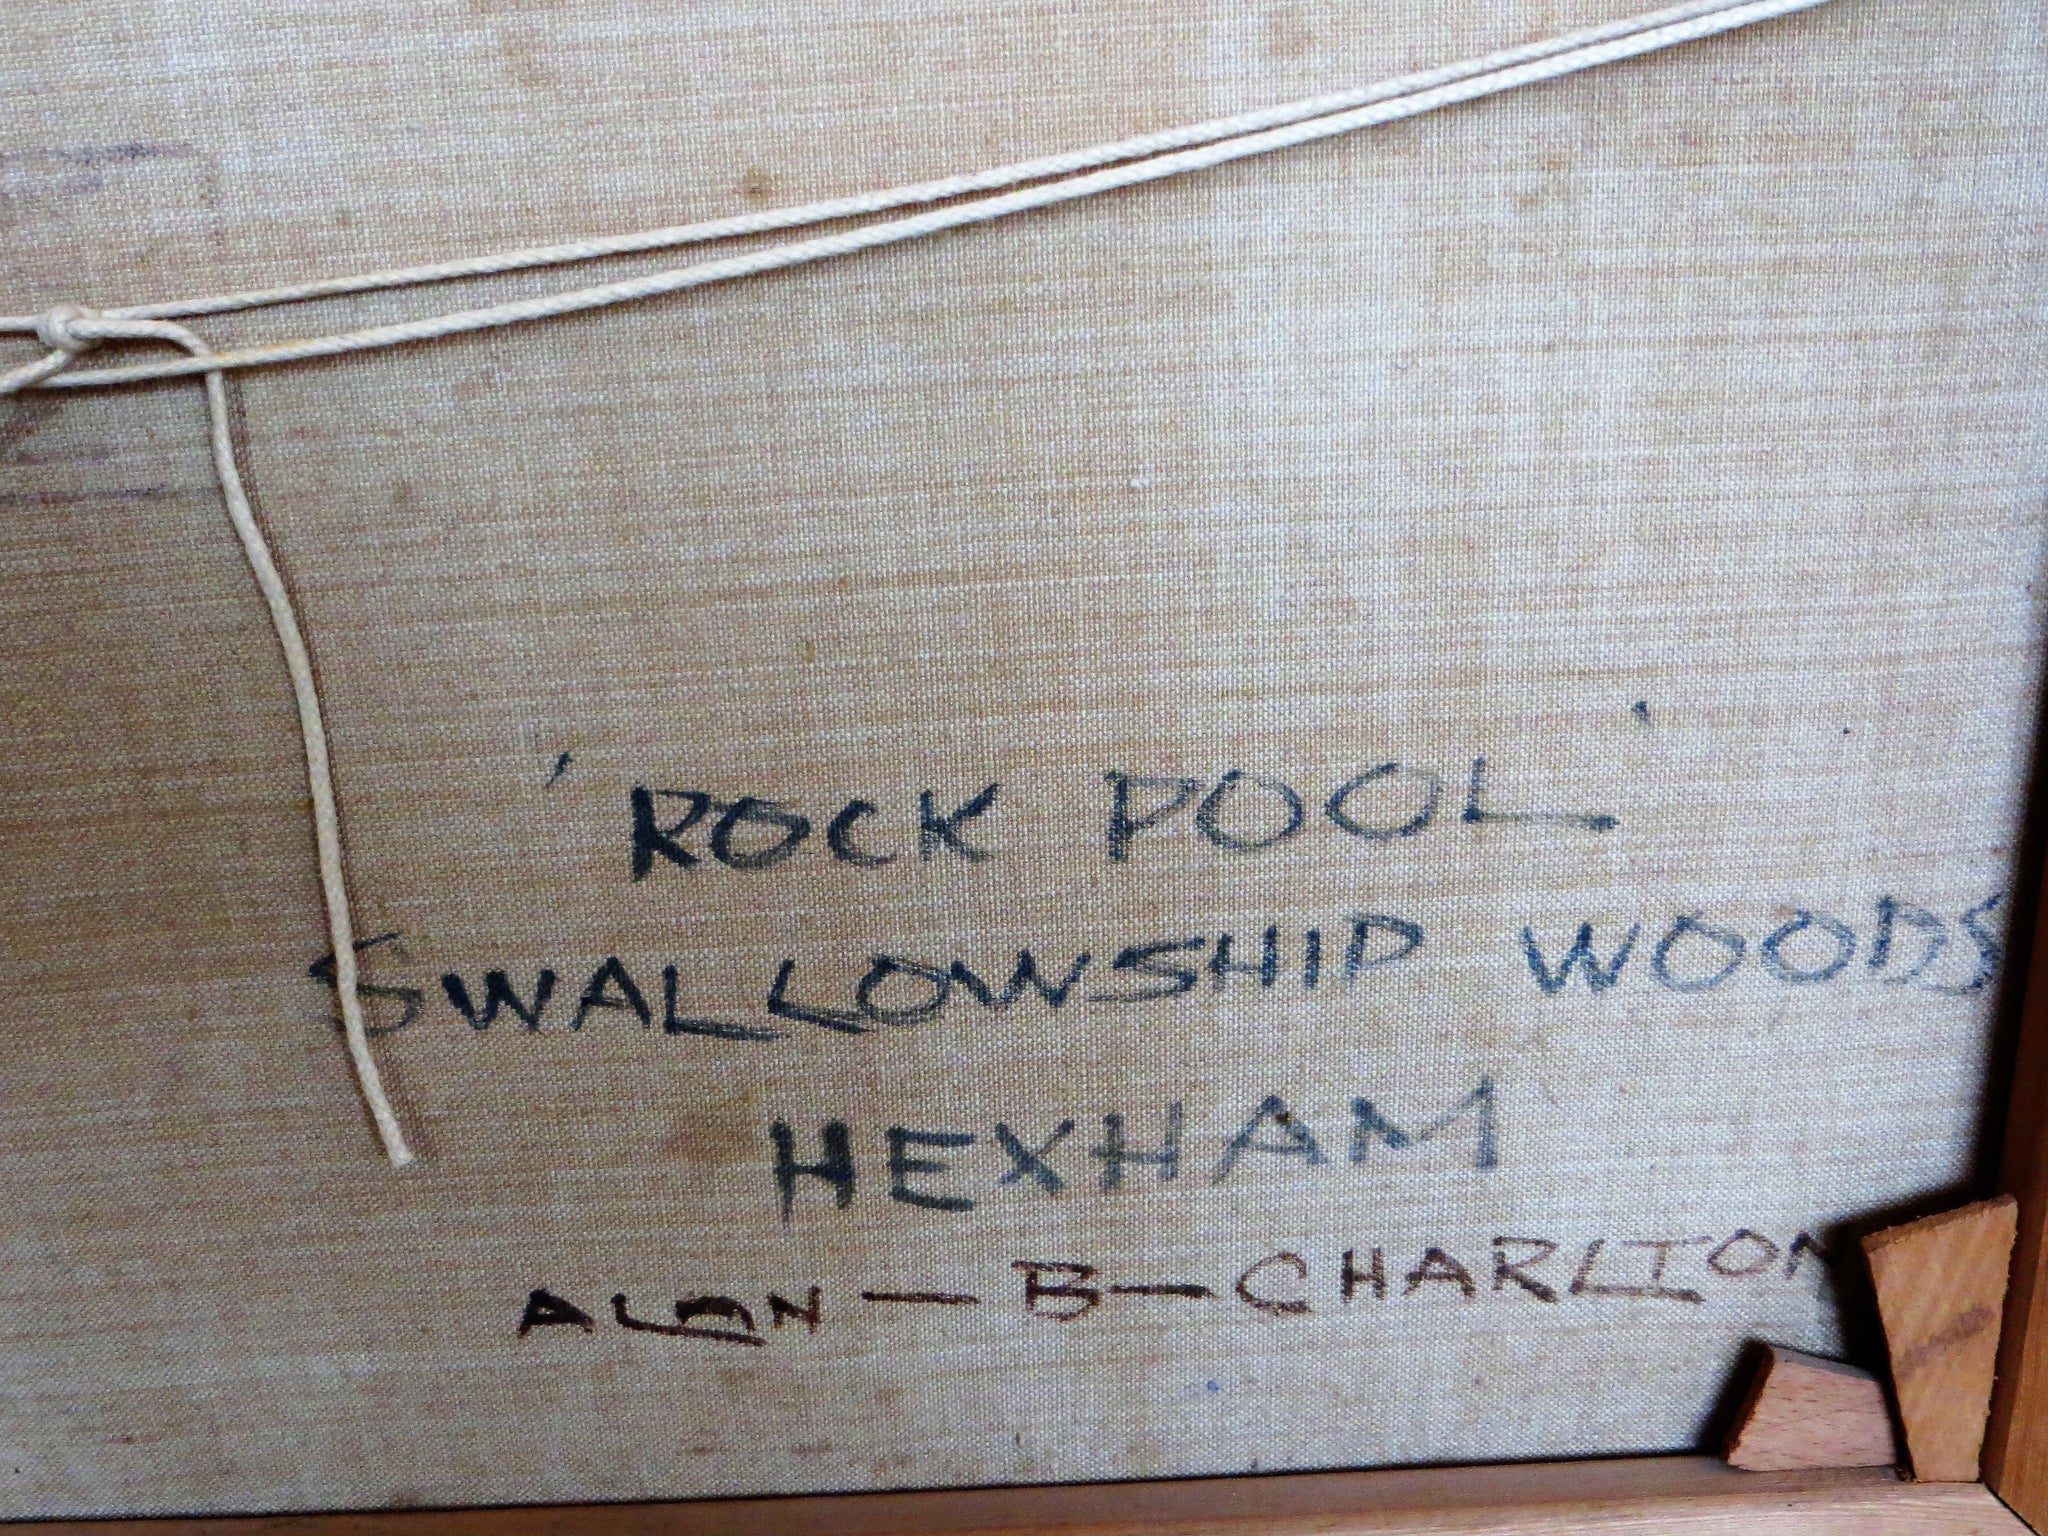 'ROCK POOL'
SWALLOWSHIP WOODS
HEXHAM
ALAN — B — CHARLTON